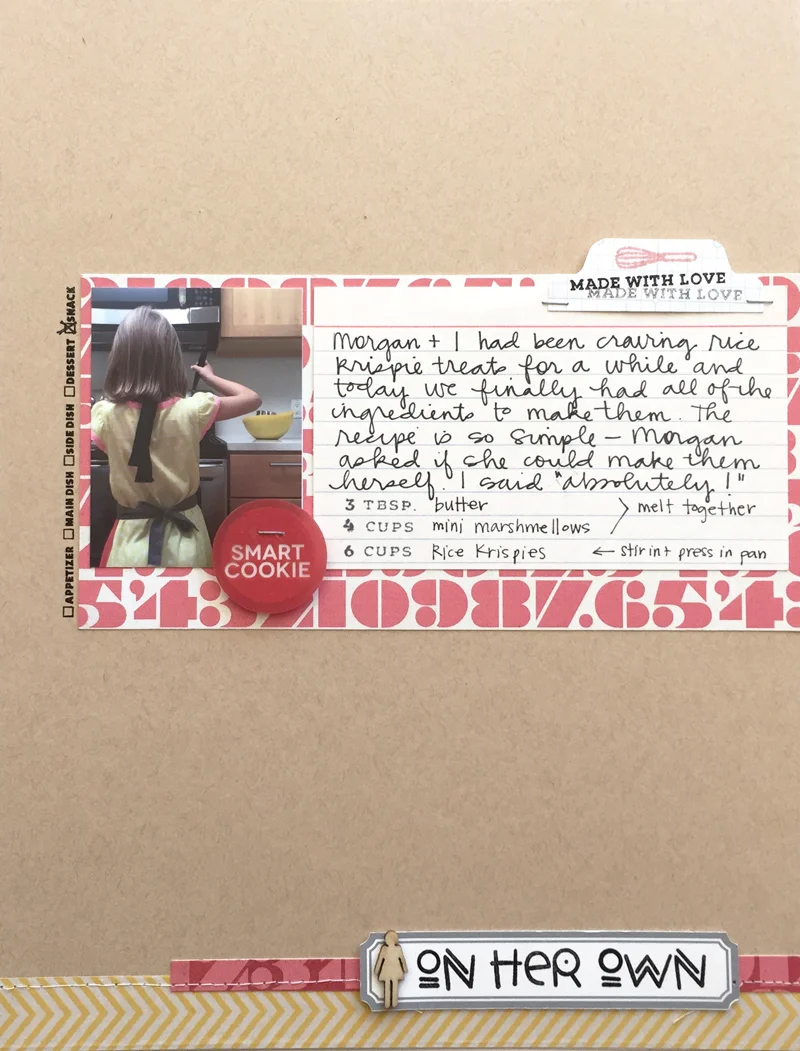 MADE WITH LOVE
MADE WITH LOVE
Morgan + I had been craving rice
krispie treats for a while and
today we finally had all of the
ingredients to make them. The
recipe is so simple – Morgan
asked if she could make them
herself. I said "absolutely!"
3 TBSP. butter
4 CUPS mini marshmellows
> melt together
6 CUPS Rice Krispies ← stir in + press in pan
SMART
COOKIE
☐ APPETIZER ☐ MAIN DISH ☐ SIDE DISH ☐ DESSERT ☒ SNACK
5 4 3 2 1 0 9 8 7 6 5 4 3
ON HER OWN